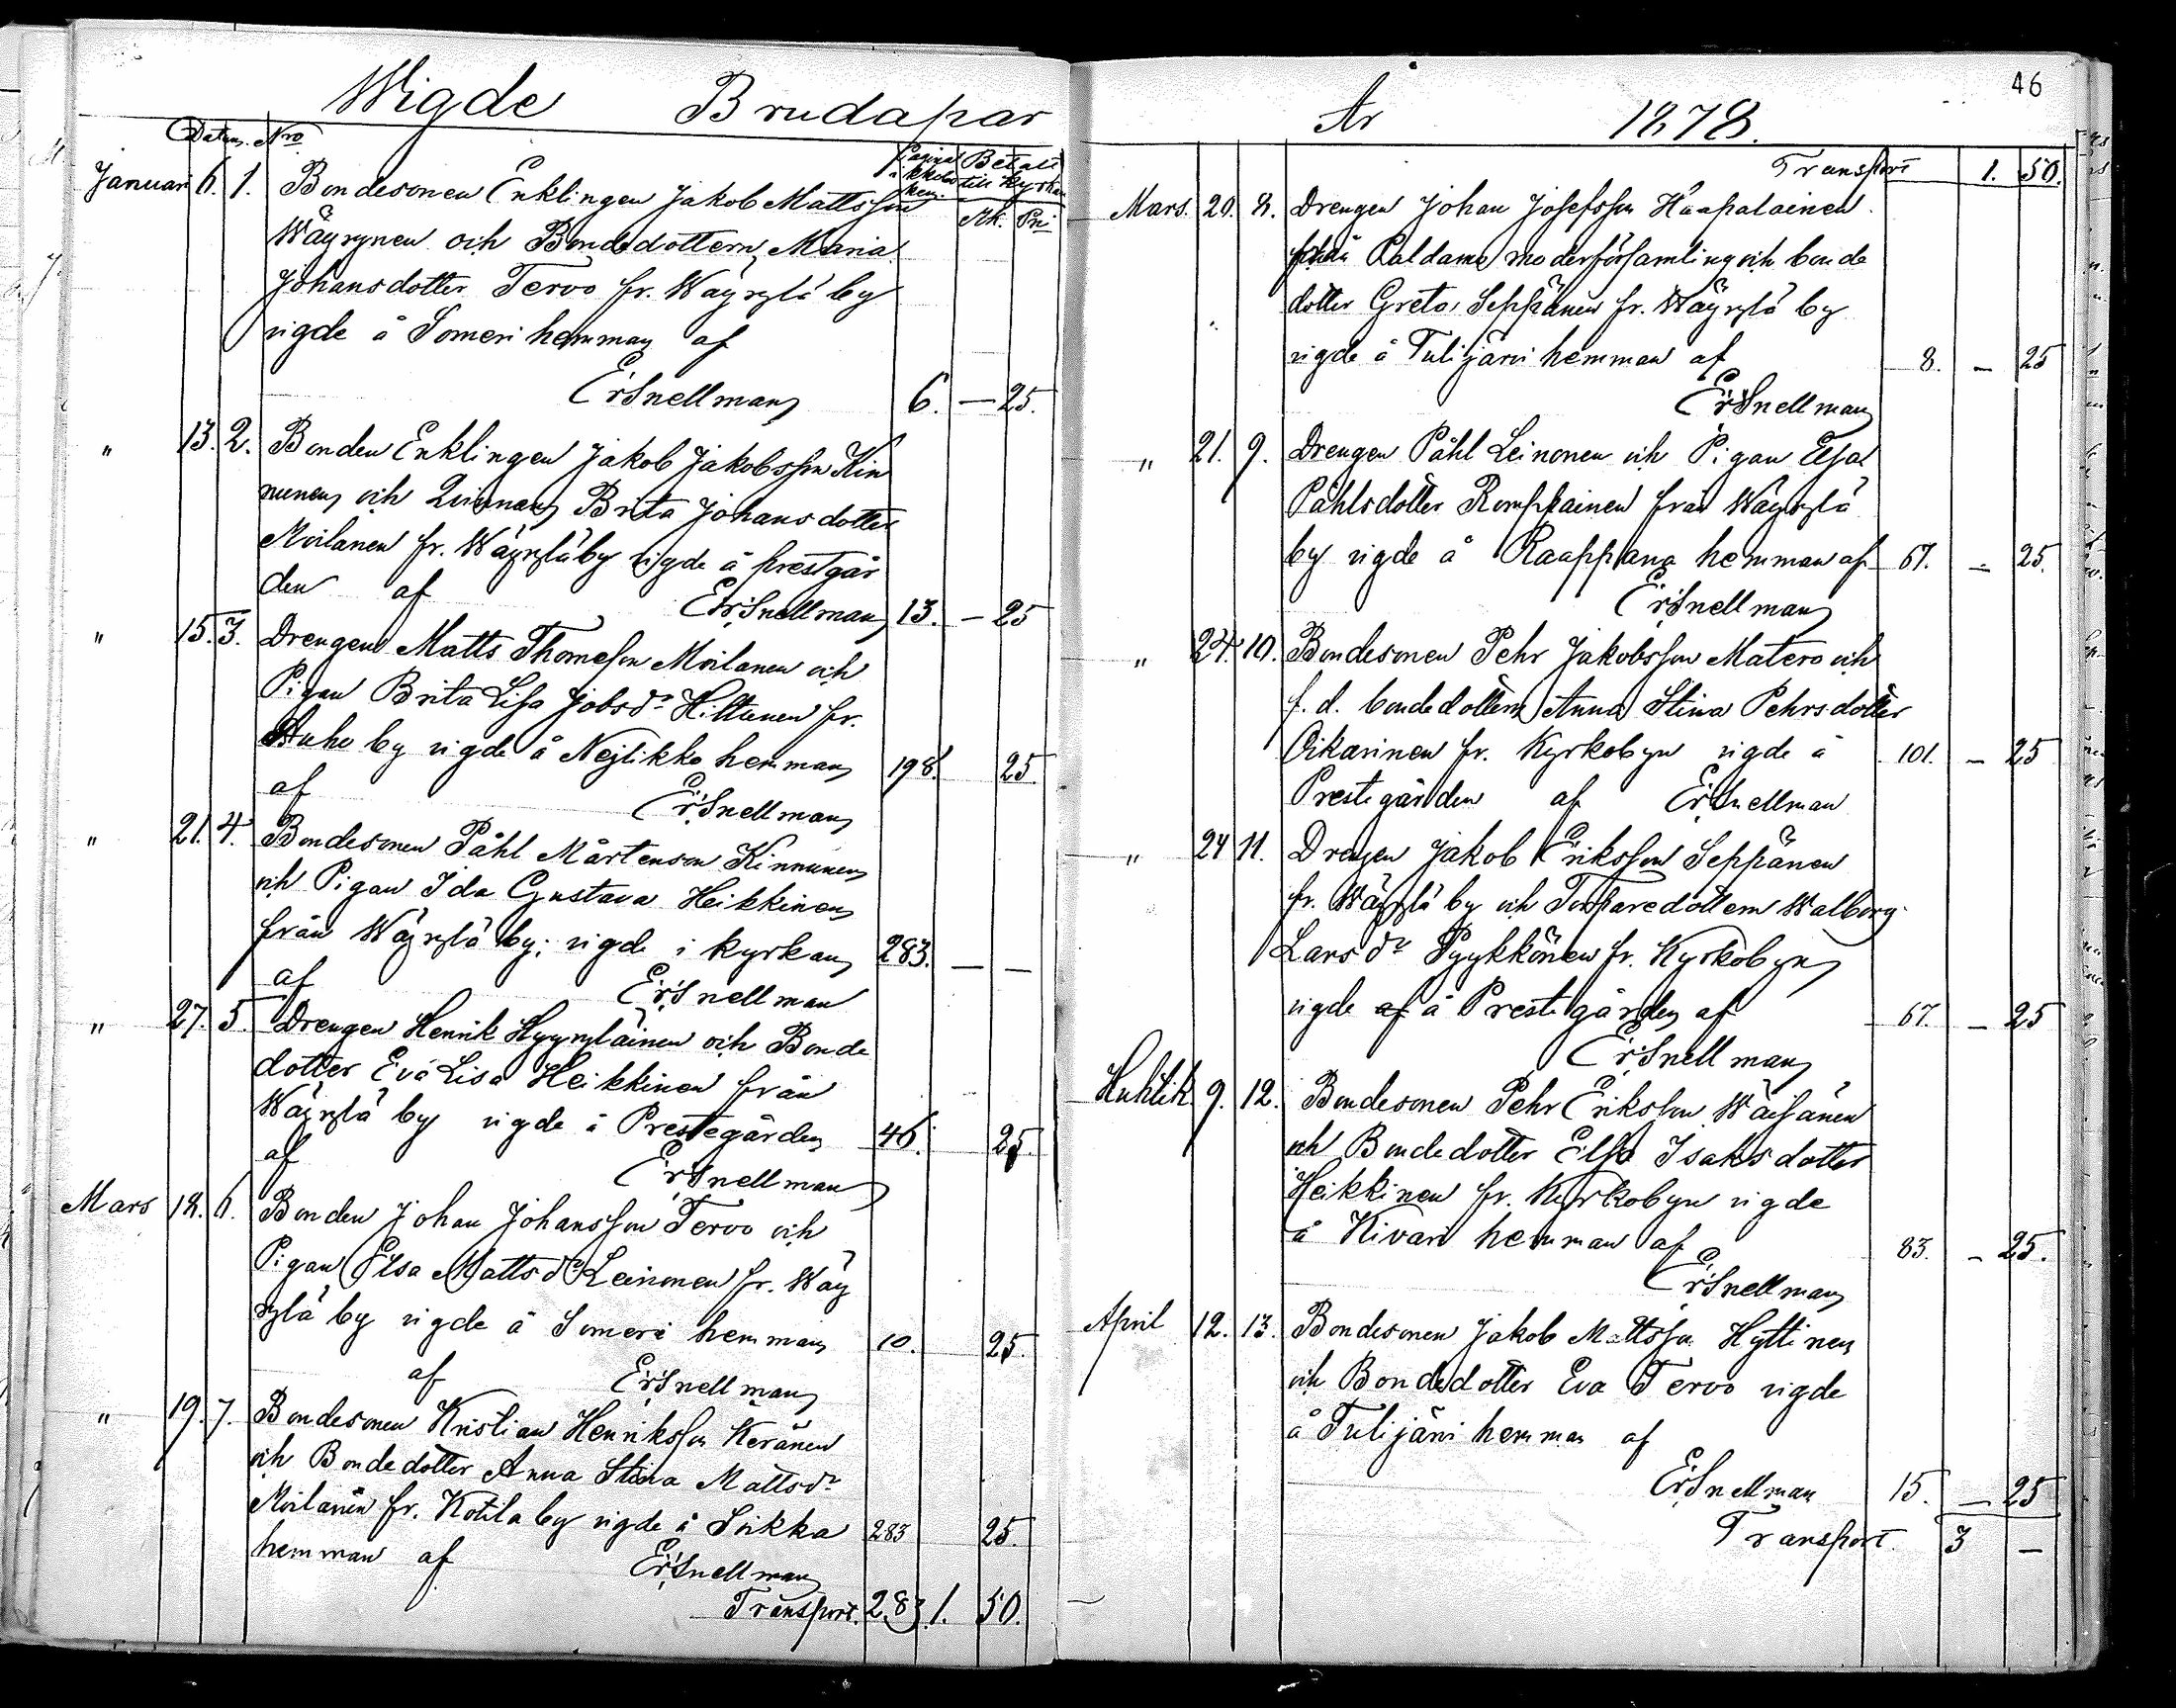 Wigde Brudapar
Datum. Nro
Pagina i kkobo ken. Betalt till Kyrkan
Mk. Pni
Januari 6. 1. Bondesonen Enklingen Jakob Mattsson
Wäyrynen och Bondedottern Maria
Johansdotter Tervo fr. Wäyrylä by
vigde å Someri hemman af
Er. Snellman 6. — 25.
" 13. 2. Bonden Enklingen Jakob Jakobsson Kin
nunen och Qvinnan Brita Johansdotter
Moilanen fr. Wäyryläby vigde å prestgår
den af Er. Snellman 13. — 25
" 15. 3. Drengen Matts Thomeson Moilanen och
Pigan Brita Lisa Jobsdr Hiltunen fr.
Auho by vigde å Nejlikko hemman 198. 25.
af Er. Snellman
" 21. 4. Bondesonen Påhl Mårtenson Kinnunen
och Pigan Ida Gustava Heikkinen
från Wäyrylä by; vigde i kyrkan 283. — —
af Er. Snellman
" 27. 5. Drengen Henrik Hyyryläinen och Bonde
dotter Eva Lisa Heikkinen från
Wäyrylä by vigde å Prestegården 46. 25.
af Er. Snellman
Mars 18. 6. Bonden Johan Johansson Tervo och
Pigan Elsa Mattsdr Leinonen fr. Wäy
rylä by vigde å Someri hemman 10. 25.
af Er. Snellman
" 19. 7. Bondesonen Kristian Henriksson Keränen
och Bondedotter Anna Stina Mattsdr
Moilanen fr. Kotila by vigde å Soikka 283 25.
hemman af Er. Snellman
Transport. 283 1. 50.
46
År 1878.
Transport 1. 50.
Mars. 20. 8. Drengen Johan Josefsson Haapalainen
från Paldamo moderförsamling och bonde
dotter Greta Seppänen fr. Wäyrylä by
vigde å Tulijärvi hemman af 8. — 25
Er. Snellman
" 21. 9. Drengen Påhl Leinonen och Pigan Elsa
Påhlsdotter Romppainen från Wäyrylä
by vigde å Raappana hemman af 67. — 25.
Er. Snellman
" 24. 10. Bondesonen Pehr Jakobsson Matero och
f. d. bondedottern Anna Stina Pehrsdotter
Oikarinen fr. Kyrkobyn vigde å 101. — 25
Prestegården af Er. Snellman
" 24 11. Drengen Jakob Eriksson Seppänen
fr. Wäyrylä by och Torparedottern Walborg
Larsdr Pyykkönen fr. Kyrkobyn
vigde af å Prestegården af 67. — 25
Er. Snellman
Huhtik. 9. 12. Bondesonen Pehr Eriksson Wäisänen
och Bondedotter Elsa Isaksdotter
Heikkinen fr. Kyrkobyn vigde
å Kivari hemman af 83. — 25.
Er. Snellman
April 12. 13. Bondesonen Jakob Mattsson Hyttinen
och Bondedotter Eva Tervo vigde
å Tulijärvi hemman af
Er. Snellman 15. — 25
Transport. 3 —